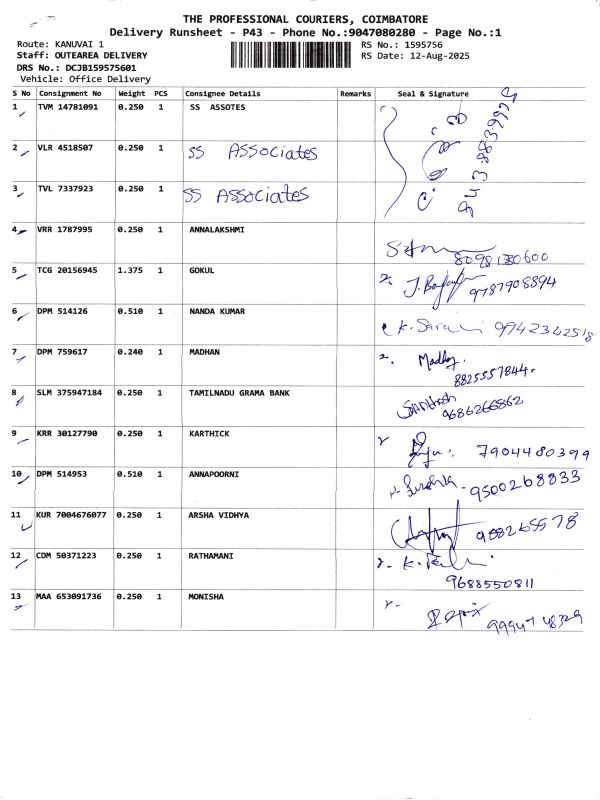 THE PROFESSIONAL COURIERS, COIMBATORE
Delivery Runsheet - P43 - Phone No.:9047080280 - Page No.:1
Route: KANUVAI 1 RS No.: 1595756
Staff: OUTEAREA DELIVERY RS Date: 12-Aug-2025
DRS No.: DCJB159575601
Vehicle: Office Delivery
S No Consignment No Weight PCS Consignee Details Remarks Seal & Signature
1 TVM 14781091 0.250 1 SS ASSOTES
2 VLR 4518507 0.250 1 SS ASSociates
3 TVL 7337923 0.250 1 SS ASSociates
4 VRR 1787995 0.250 1 ANNALAKSHMI
5 TCG 20156945 1.375 1 GOKUL 9787908894
6 DPM 514126 0.510 1 NANDA KUMAR 9942342518
7 DPM 759617 0.240 1 MADHAN
8825557844.
8 SLM 375947184 0.250 1 TAMILNADU GRAMA BANK
9686266862
9 KRR 30127790 0.250 1 KARTHICK 7904480399
10 DPM 514953 0.510 1 ANNAPOORNI 9500268833
11 KUR 7004676077 0.250 1 ARSHA VIDHYA
12 CDM 50371223 0.250 1 RATHAMANI
9688550811
13 MAA 653091736 0.250 1 MONISHA